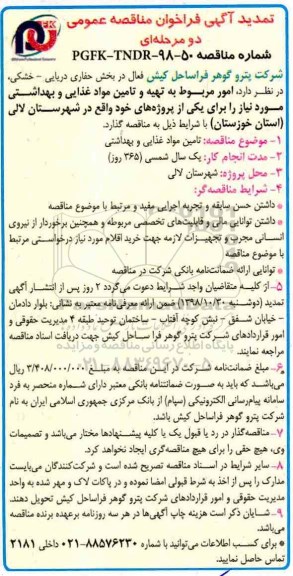 تمدید آگهی فراخوان مناقصه عمومی
دو مرحله‌ای
شماره مناقصه PGFK-TNDR-98-50
شرکت پترو گوهر فراساحل کیش فعال در بخش حفاری دریایی - خشکی،
در نظر دارد، امور مربوط به تهیه و تامین مواد غذایی و بهداشتی
مورد نیاز را برای یکی از پروژه‌های خود واقع در شهرستان لالی
(استان خوزستان) با شرایط ذیل به مناقصه گذارد.
۱- موضوع مناقصه: تامین مواد غذایی و بهداشتی
۲- مدت انجام کار: یک سال شمسی (۳۶۵ روز)
۳- محل پروژه: شهرستان لالی
۴- شرایط مناقصه‌گر:
* داشتن حسن سابقه و تجربه اجرایی مفید و مرتبط با موضوع مناقصه
* داشتن توانایی مالی و قابلیت‌های تخصصی مربوطه و همچنین برخوردار از نیروی
انسانی مجرب و تجهیزات لازمه جهت خرید اقلام مورد نیاز درخواستی مرتبط
با موضوع مناقصه
* توانایی ارائه ضمانت‌نامه بانکی شرکت در مناقصه
۵- از کلیه متقاضیان واجد شرایط دعوت می‌گردد ۲ روز پس از انتشار آگهی
تمدید (دوشنبه ۱۳۹۸/۱۰/۳۰) ضمن ارائه معرفی‌نامه معتبر به نشانی: بلوار دادمان
- خیابان شفق - نبش کوچه آفتاب - ساختمان توحید طبقه ۴ مدیریت حقوقی و
امور قراردادهای شرکت پترو گوهر فراساحل کیش جهت دریافت اسناد مناقصه
مراجعه نمایند.
۶- مبلغ ضمانت‌نامه شرکت در این مناقصه به مبلغ ۳/۴۰۸/۰۰۰/۰۰۰ ریال
می‌باشد که باید به صورت ضمانتنامه بانکی معتبر دارای شماره منحصر به فرد
سامانه پیام‌رسانی الکترونیکی (سپام) از بانک مرکزی جمهوری اسلامی ایران به نام
شرکت پترو گوهر فراساحل کیش باشد.
۷- مناقصه‌گذار در رد یا قبول یک یا کلیه پیشنهادها مختار می‌باشد و تصمیمات
وی، هیچ حقی را برای هیچ مناقصه‌گری ایجاد نخواهد کرد.
۸- سایر شرایط در اسناد مناقصه تصریح شده است و شرکت‌کنندگان می‌بایست
مدارک را پس از اخذ به شرط قبولی امضا نموده و در پاکات لاک و مهر شده به واحد
مدیریت حقوقی و امور قراردادهای شرکت پترو گوهر فراساحل کیش تحویل دهند.
۹- شایان ذکر است هزینه چاپ آگهی‌ها در هر سه روزنامه برعهده برنده مناقصه
می‌باشد.
* برای کسب اطلاعات می‌توانید با شماره ۸۸۵۷۶۲۳۰-۰۲۱ داخلی ۲۱۸۱
تماس حاصل نمایید.